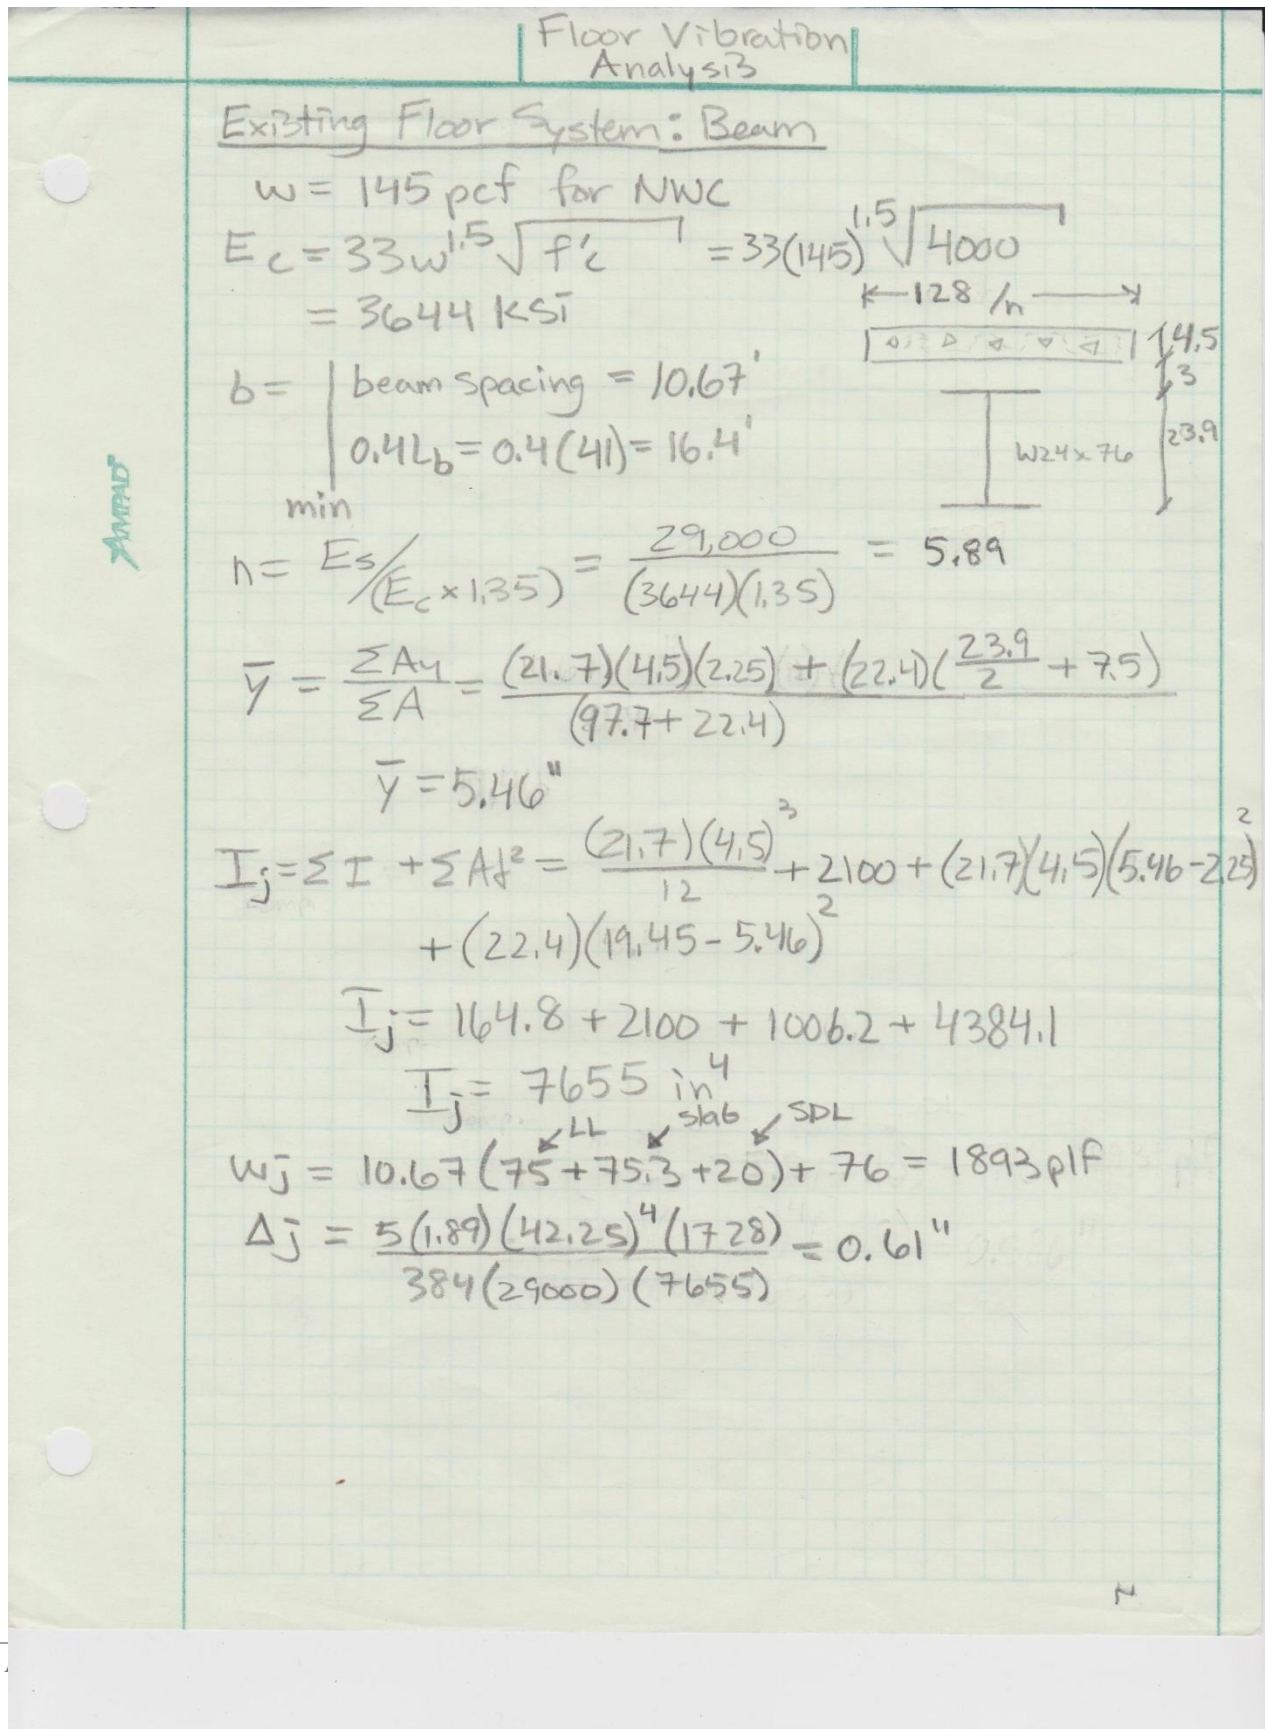 Floor Vibration
Analysis
Existing Floor System: Beam
w = 145 pcf for NWC
Ec = 33w^1.5 √f'c = 33(145)^1.5 √4000
= 3644 ksi
128 /n
4.5
3
23.9
W24x76
b = | beam spacing = 10.67'
| 0.4Lb = 0.4(41) = 16.4'
min
n = Es/(Ec x 1.35) = 29,000/(3644)(1.35) = 5.89
ȳ = ΣAy/ΣA = (21.7)(4.5)(2.25) + (22.4)(23.9/2 + 7.5)/(97.7 + 22.4)
ȳ = 5.46"
Ij = ΣI + ΣAd² = (21.7)(4.5)³/12 + 2100 + (21.7)(4.5)(5.46 - 2.25)²
+ (22.4)(19.45 - 5.46)²
Ij = 164.8 + 2100 + 1006.2 + 4384.1
Ij = 7655 in⁴
LL slab SDL
wj = 10.67(75 + 75.3 + 20) + 76 = 1893 plf
Δj = 5(1.89)(42.25)⁴(1728)/384(29000)(7655) = 0.61"
AMPAD